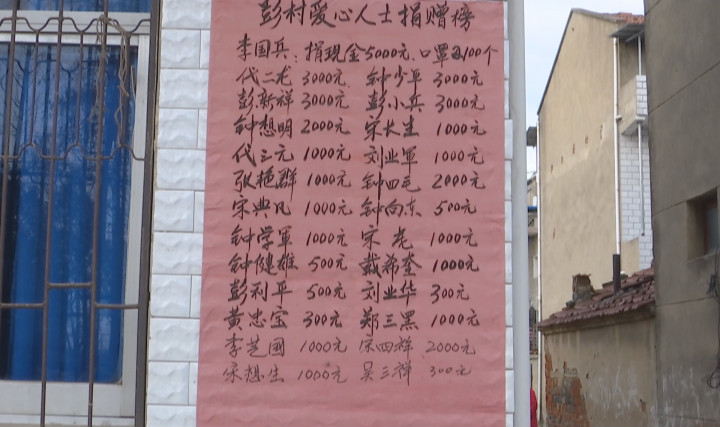 彭村爱心人士捐赠榜
李国兵、捐现金5000元、口罩2100个
代二龙 3000元 钟少平 3000元
彭新祥 3000元 彭小兵 3000元
钟想明 2000元 宋长生 1000元
代三元 1000元 刘业軍 1000元
张艳群 1000元 钟四毛 2000元
宋典凡 1000元 钟向东 500元
钟学軍 1000元 宋龙 1000元
钟健雄 500元 戴希奎 1000元
彭利平 500元 刘业华 300元
黄忠宝 300元 郑三黑 1000元
李芝國 1000元 宋四祥 2000元
宋想生 1000元 吴三祥 300元